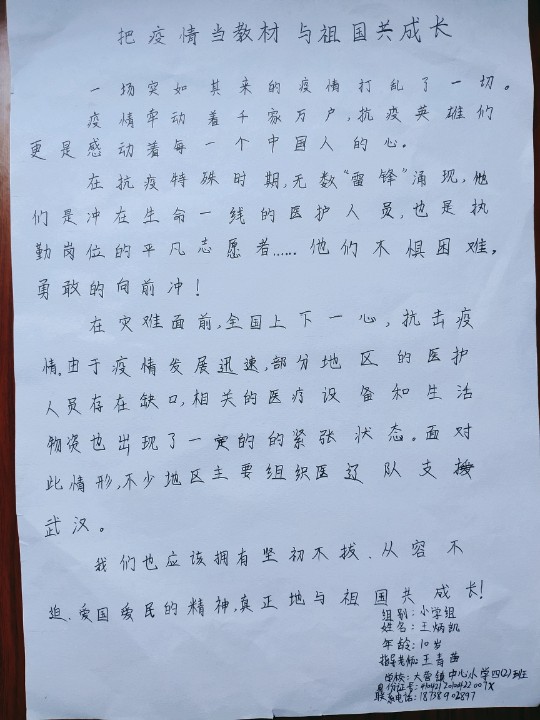 把疫情当教材与祖国共成长
一场突如其来的疫情打乱了一切。
疫情牵动着千家万户,抗疫英雄们
更是感动着每一个中国人的心。
在抗疫特殊时期,无数“雷锋”涌现,他
们是冲在生命一线的医护人员,也是执
勤岗位的平凡志愿者……他们不惧困难,
勇敢的向前冲!
在灾难面前,全国上下一心,抗击疫
情。由于疫情发展迅速,部分地区的医护
人员存在缺口,相关的医疗设备和生活
物资也出现了一定的的紧张状态。面对
此情形,不少地区主要组织医辽队支援
武汉。
我们也应该拥有坚初不拔、从容不
迫、爱国爱民的精神,真正地与祖国共成长!
组别:小学组
姓名:王炳凯
年龄:10岁
指导老师:王青
学校:大营镇中心小学四(2)班
身份证号:
联系电话:18738902897